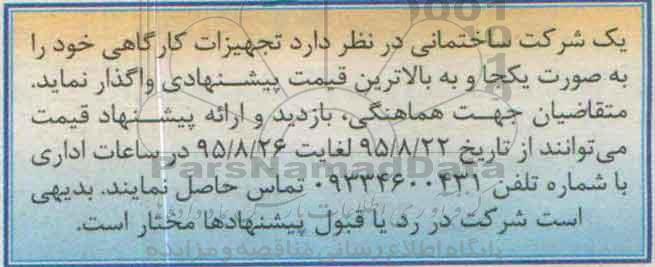 یک شرکت ساختمانی در نظر دارد تجهیزات کارگاهی خود را
به صورت یکجا و به بالاترین قیمت پیشنهادی واگذار نماید.
متقاضیان جهت هماهنگی، بازدید و ارائه پیشنهاد قیمت
می‌توانند از تاریخ ۹۵/۸/۲۲ لغایت ۹۵/۸/۲۶ در ساعات اداری
ParsNamadData
با شماره تلفن ۰۹۳۳۴۶۰۰۴۳۱ تماس حاصل نمایند. بدیهی
است شرکت در رد یا قبول پیشنهادها مختار است.
پایگاه اطلاع رسانی مناقصه و مزایده